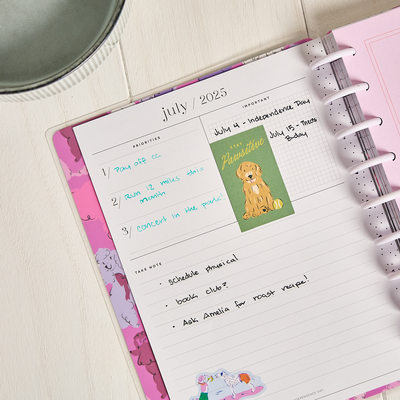 july / 2025
PRIORITIES
1/ Pay off cc
2/ Run 12 miles this
month
3/ concert in the park!
IMPORTANT
July 4 - Independence Day
July 15 - Theo's
B-day
STAY
Pawsitive
TAKE NOTE
• schedule physical
• book club?
• Ask Amelia for roast recipe!